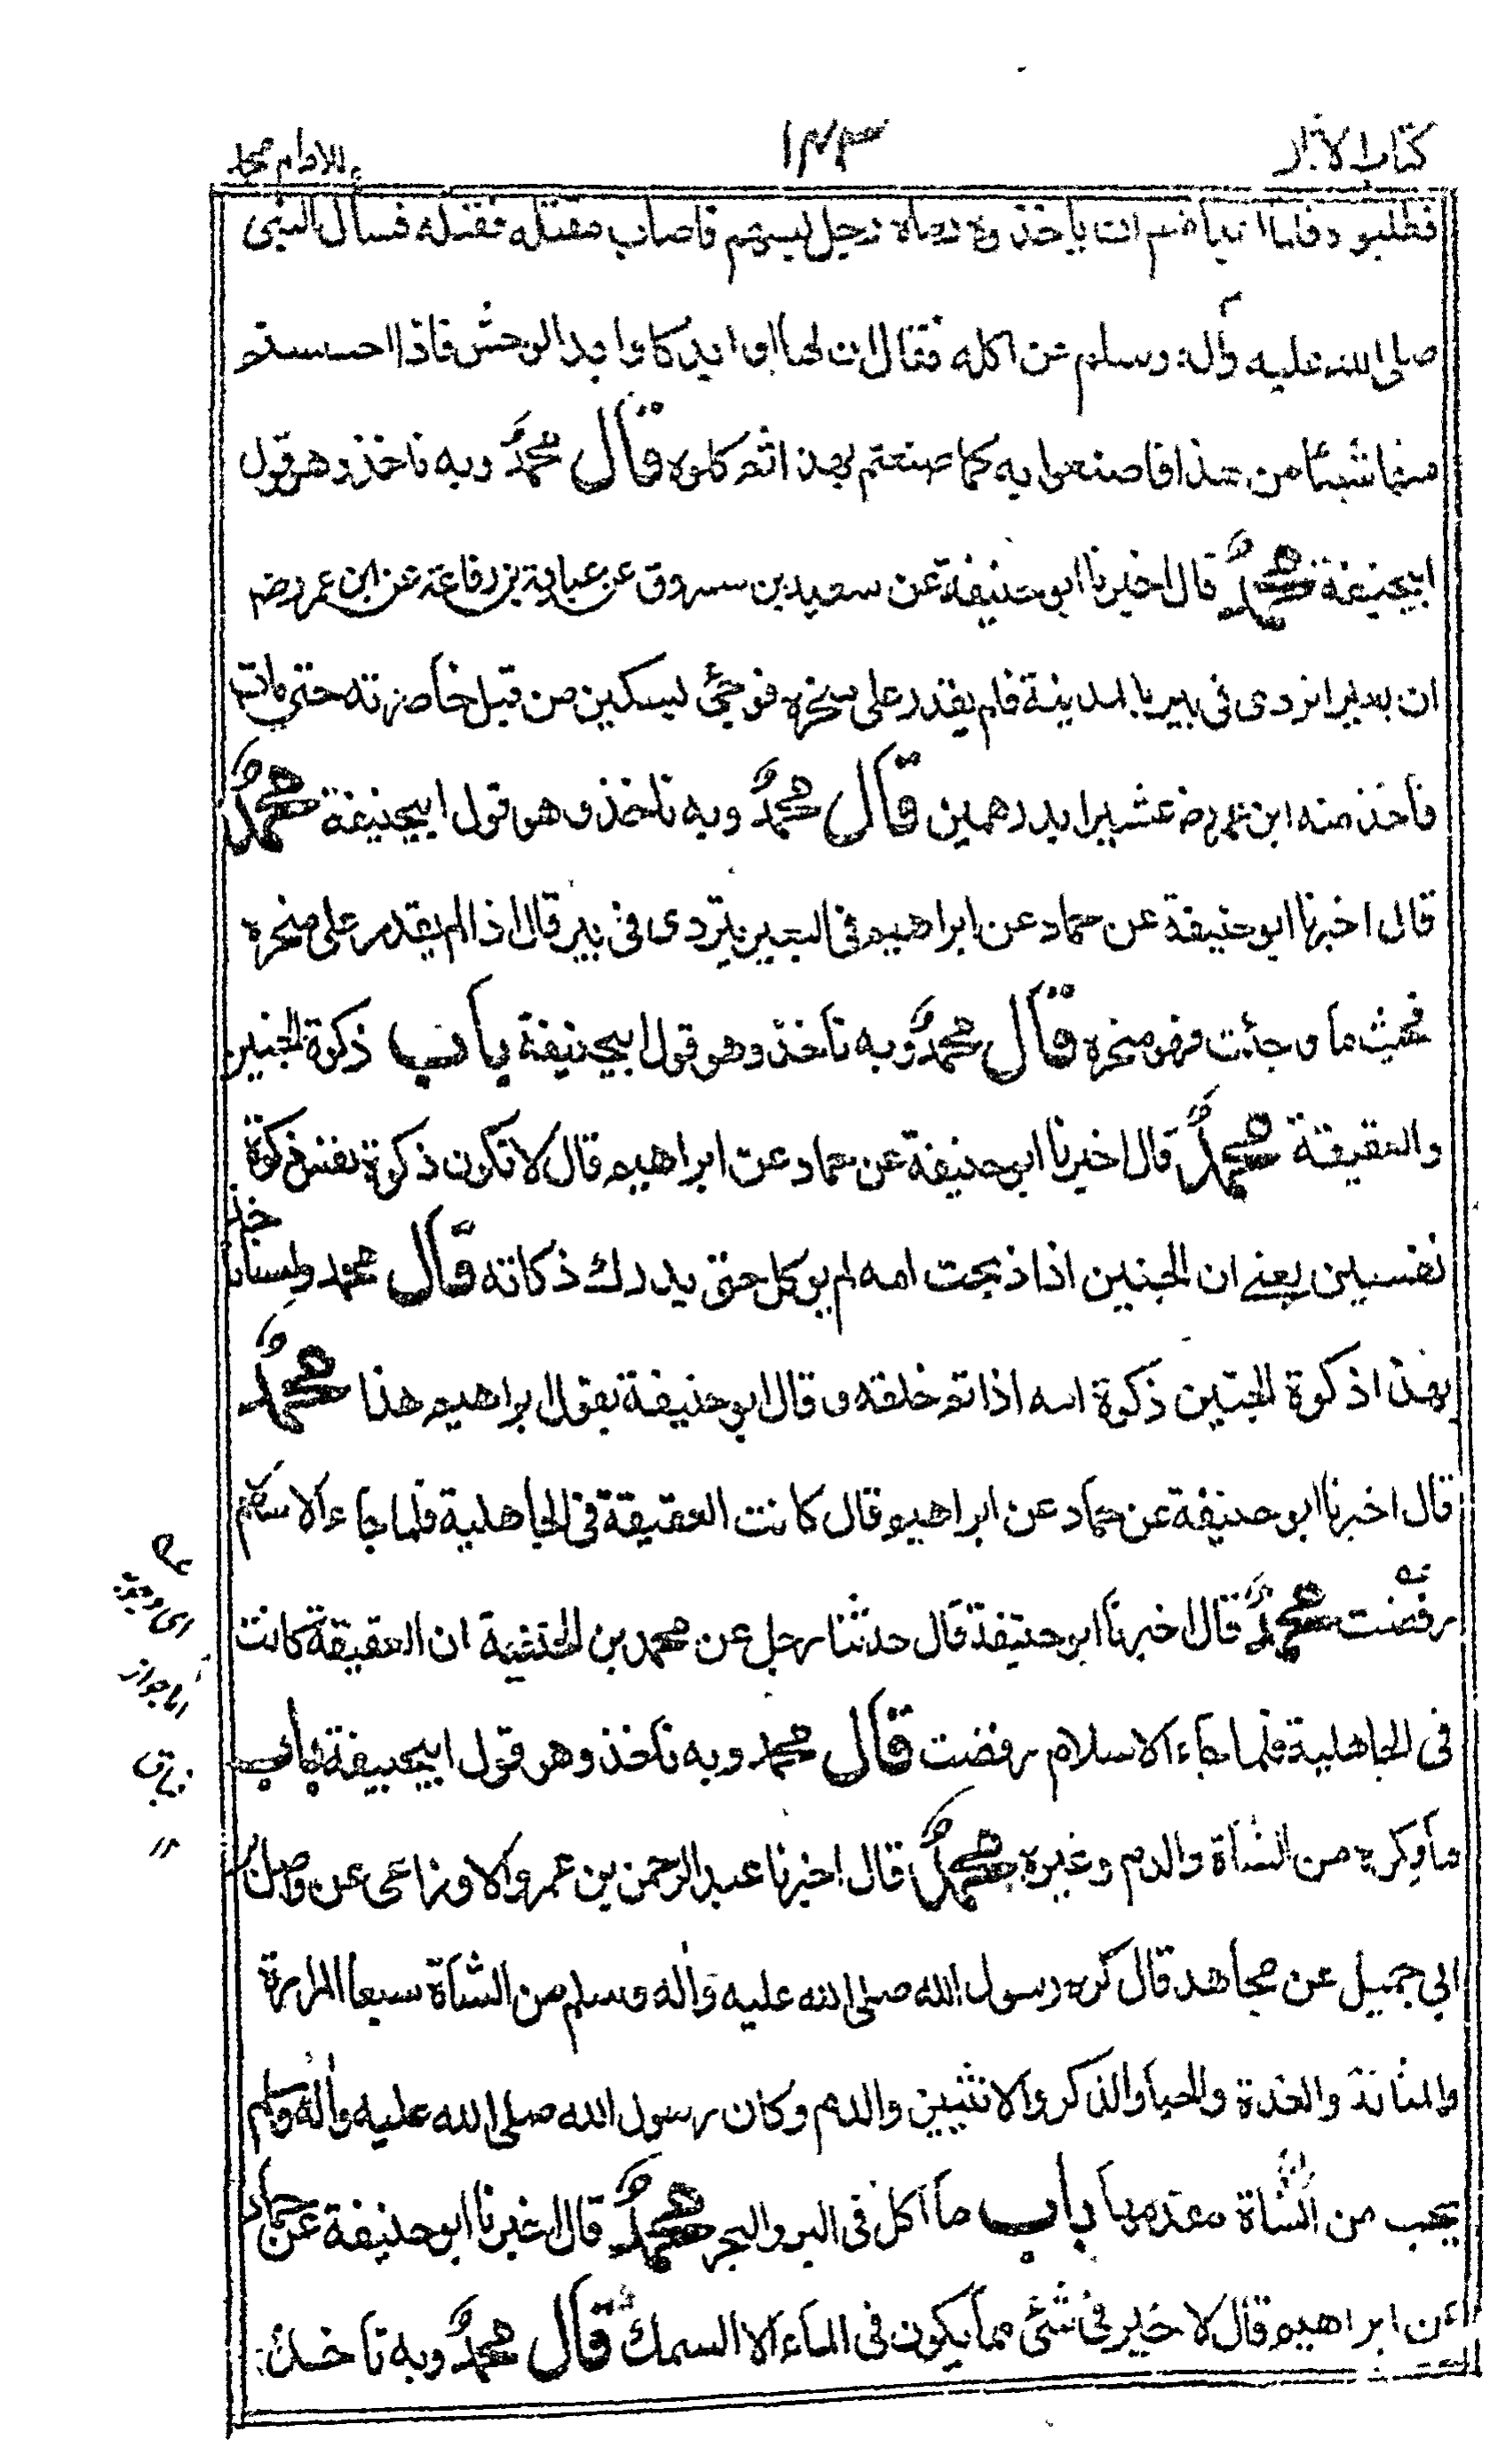 كتاب الآثار
١٤٣
للامام محمد
فطلبوه فلما اعياهم ان يأخذوه رماه رجل بسهم فاصاب مقتله فقتله فسأل النبى
صلى الله عليه وآله وسلم عن اكله فقال ان لها اوابد كاوابد الوحش فاذا احسستم
منها شيئا من هذا فاصنعوا به كما صنعتم بهذا ثم كلوه قال محمدؒ وبه ناخذ وهو قول
ابيحنيفة محمدؒ قال اخبرنا ابو حنيفة عن سعيد بن مسروق عن عباية بن رفاعة عن ابن عمر رضه
ان بعيرا تردى فى بير بالمدينة فلم يقدر على منحره فوجئ بسكين من قبل خاصرته حتى مات
فأخذ منه ابن عمر رضه عشيرا بدرهمين قال محمدؒ وبه ناخذ وهو قول ابيحنيفة محمدؒ
قال اخبرنا ابو حنيفة عن حماد عن ابراهيم فى البعير يتردى فى بير قال اذا لم يقدر على منحره
فحيث ما وجئت فهو منحره قال محمدؒ وبه ناخذ وهو قول ابيحنيفة باب ذكوة الجنين
والعقيقة محمدؒ قال اخبرنا ابو حنيفة عن حماد عن ابراهيم قال لا تكون ذكوة نفس ذكوة
نفسين يعنى ان الجنين اذا ذبحت امه لم يوكل حتى يدرك ذكاته قال محمد ولسنا ناخذ
بهذا ذكوة الجنين ذكوة امه اذا تم خلقه وقال ابو حنيفة بقول ابراهيم هذا محمدؒ
قال اخبرنا ابو حنيفة عن حماد عن ابراهيم قال كانت العقيقة فى الجاهلية فلما جاء الاسلام
رفضت محمدؒ قال اخبرنا ابو حنيفة قال حدثنا رجل عن محمد بن الحنفية ان العقيقة كانت
فى الجاهلية فلما جاء الاسلام رفضت قال محمد وبه ناخذ وهو قول ابيحنيفة باب
ما يكره من الشاة والدم وغيره محمدؒ قال اخبرنا عبد الرحمن بن عمرو الاوزاعى عن واصل بن
ابى جميل عن مجاهد قال كره رسول الله صلى الله عليه وآله وسلم من الشاة سبعا المرارة
والمثانة والغدة والحيا والذكر والانثيين والدم وكان رسول الله صلى الله عليه وآله وسلم
يحب من الشاة مقدمها باب ما اكل فى البر والبحر محمدؒ قال اخبرنا ابو حنيفة عن حماد
عن ابراهيم قال لا خير فى شئ مما يكون فى الماء الا السمك قال محمدؒ وبه ناخذ